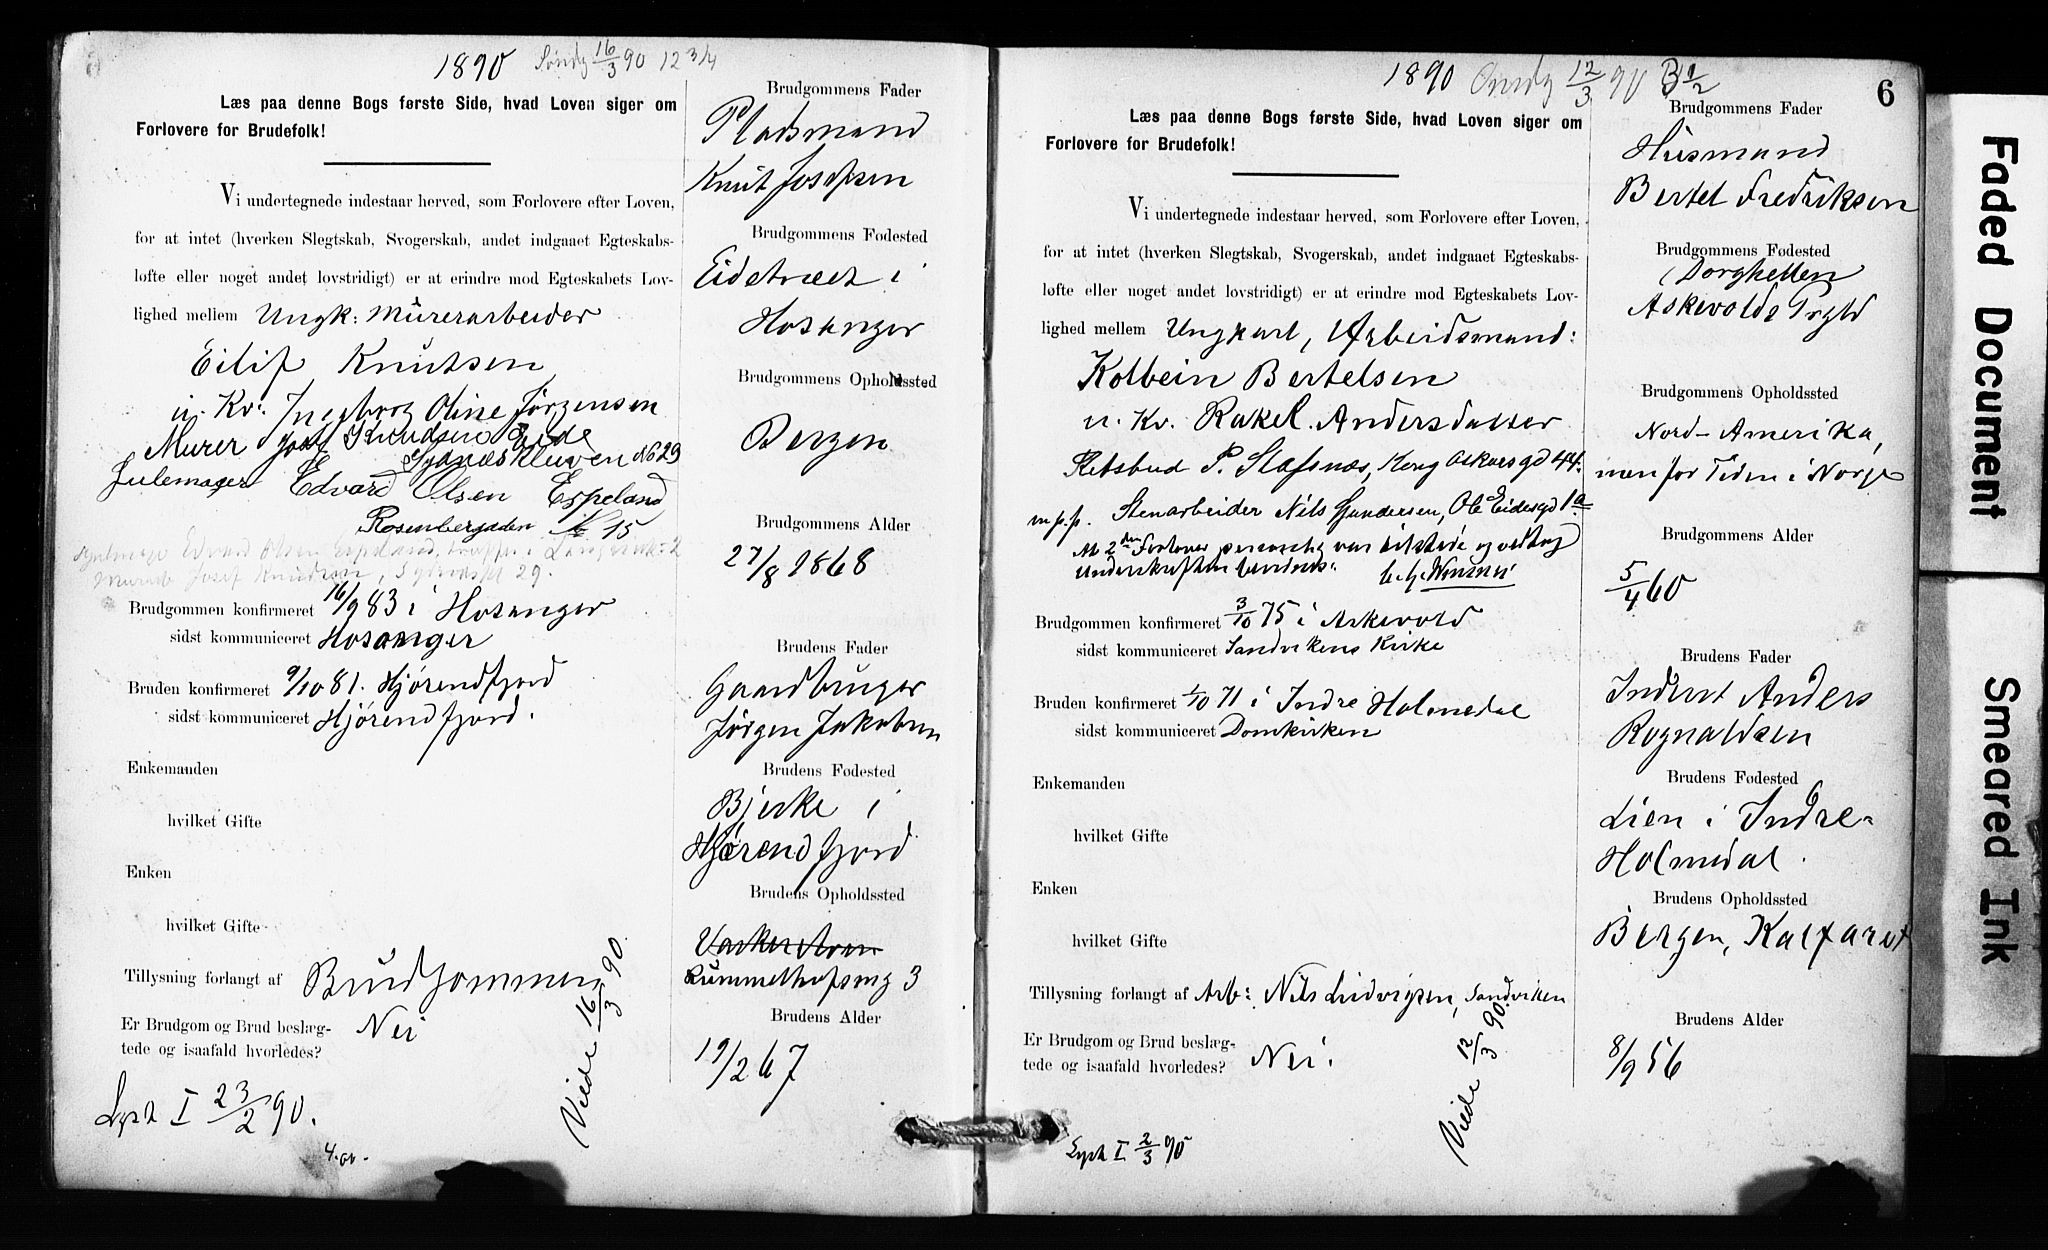 1890 Søndg 16/3 90 12 3/4
Læs paa denne Bogs første Side, hvad Loven siger om
Forlovere for Brudefolk!
Vi undertegnede indestaar herved, som Forlovere efter Loven,
for at intet (hverken Slegtskab, Svogerskab, andet indgaaet Egteskabs-
løfte eller noget andet lovstridigt) er at erindre mod Egteskabets Lov-
lighed mellem Ungk: Murerarbeider
Eilif Knutsen
u. Kv: Ingeborg Oline Jørgensen
Murer Josef Knudsen Eide
Sydnæskleven No 29
Julemager Edvard Olsen Espeland
Rosenbergaden № 15
Edvard Olsen Espeland,
Josef Knudsen, 29.
Brudgommen konfirmeret 16/9 83 i Hosanger
sidst kommuniceret Hosanger
Bruden konfirmeret 9/10 81. Hjørendfjord
sidst kommuniceret Hjørendfjord.
Enkemanden
hvilket Gifte
Enken
hvilket Gifte
Tillysning forlangt af Brudgommen
Er Brudgom og Brud beslæg-
tede og isaafald hvorledes? Nei
Viede 16/3 90
Lyst I 23/2 90.
Brudgommens Fader
Pladsmand
Knut Josefsen
Brudgommens Fødested
Eidetræet i
Hosanger
Brudgommens Opholdssted
Bergen
Brudgommens Alder
27/8 1868
Brudens Fader
Gaardbruger
Jørgen Jakobsen
Brudens Fødested
Bjerke i
Hjørendfjord
Brudens Opholdssted
3
Brudens Alder
19/2 67
1890 Onsdg 12/3 90 3 1/2
6
Læs paa denne Bogs første Side, hvad Loven siger om
Forlovere for Brudefolk!
Vi undertegnede indestaar herved, som Forlovere efter Loven,
for at intet (hverken Slegtskab, Svogerskab, andet indgaaet Egteskabs-
løfte eller noget andet lovstridigt) er at erindre mod Egteskabets Lov-
lighed mellem Ungkarl, Arbeidsmand:
Kolbein Bertelsen
u. Kv. Rakel Andersdatter
Retsbud P. Stafsnæs, Kong Oskarsgd 44.
m.p.p. Stenarbeider Nils Gundersen, Ole Eidesgd 1a
At 2den Forlover personlig var tilstede og vedtog
Underskriften bevidnes:
Brudgommen konfirmeret 3/10 75 i Askevold
sidst kommuniceret Sandvikens Kirke
Bruden konfirmeret 1/10 71 i Indre Holmedal
sidst kommuniceret Domkirken
Enkemanden
hvilket Gifte
Enken
hvilket Gifte
Tillysning forlangt af Arb: Nils Ludvigsen, Sandviken
Er Brudgom og Brud beslæg-
tede og isaafald hvorledes? Nei.
Viede 12/3 90.
Lyst I 2/3 90
Brudgommens Fader
Husmand
Bertel Fredriksen
Brudgommens Fødested
Askevolds Prgld
Brudgommens Opholdssted
Nord-Amerika,
men for Tiden i Norge
Brudgommens Alder
5/4 60
Brudens Fader
Inderst Anders
Rognaldsen
Brudens Fødested
Lien i Indre-
Holmedal.
Brudens Opholdssted
Bergen, Kalfaret
Brudens Alder
8/9 56
Faded Document
Smeared Ink